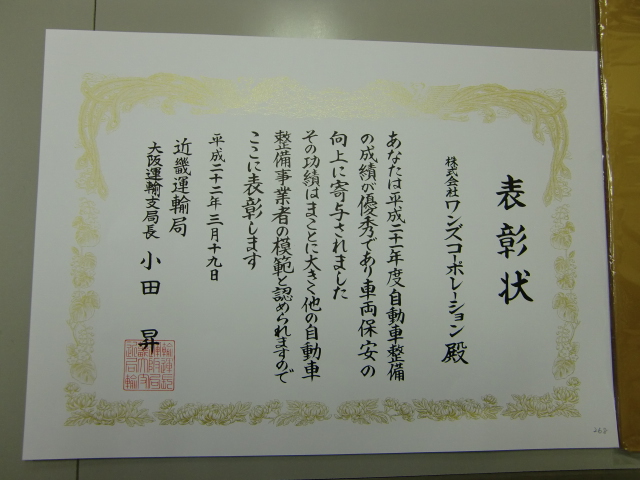 表彰状
株式会社ワンズコーポレーション殿
あなたは平成二十一年度自動車整備
の成績が優秀であり車両保安の
向上に寄与されました
その功績はまことに大きく他の自動車
整備事業者の模範と認められますので
ここに表彰します
平成二十二年三月十九日
近畿運輸局
大阪運輸支局長 小田 昇